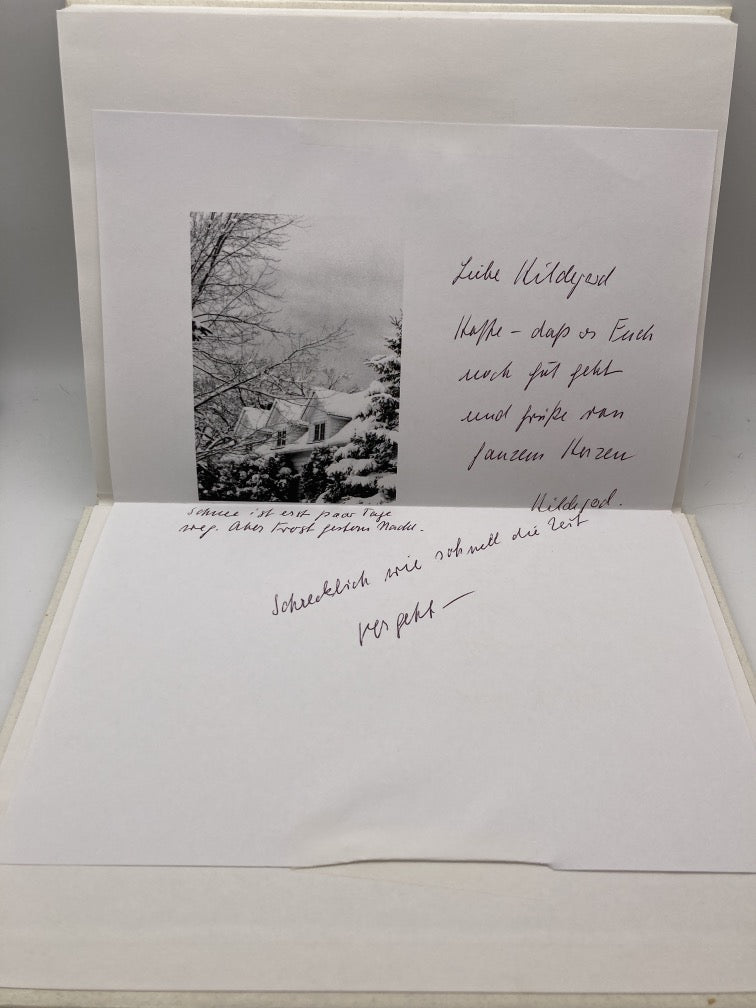 Liebe Hildegard
Hoffe – daß es Euch
noch gut geht
und grüße von
ganzem Herzen
Hildegard.
Schnee ist erst paar Tage
weg. Aber Frost gestern Nacht.
Schrecklich wie schnell die Zeit
vergeht —